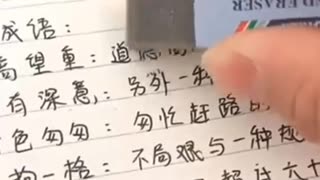 ND ERASER
成语:
高望重:道德高
有深意:另外一种
色匆匆:匆忙赶路的
拘一格:不局限与一种规
超过六十